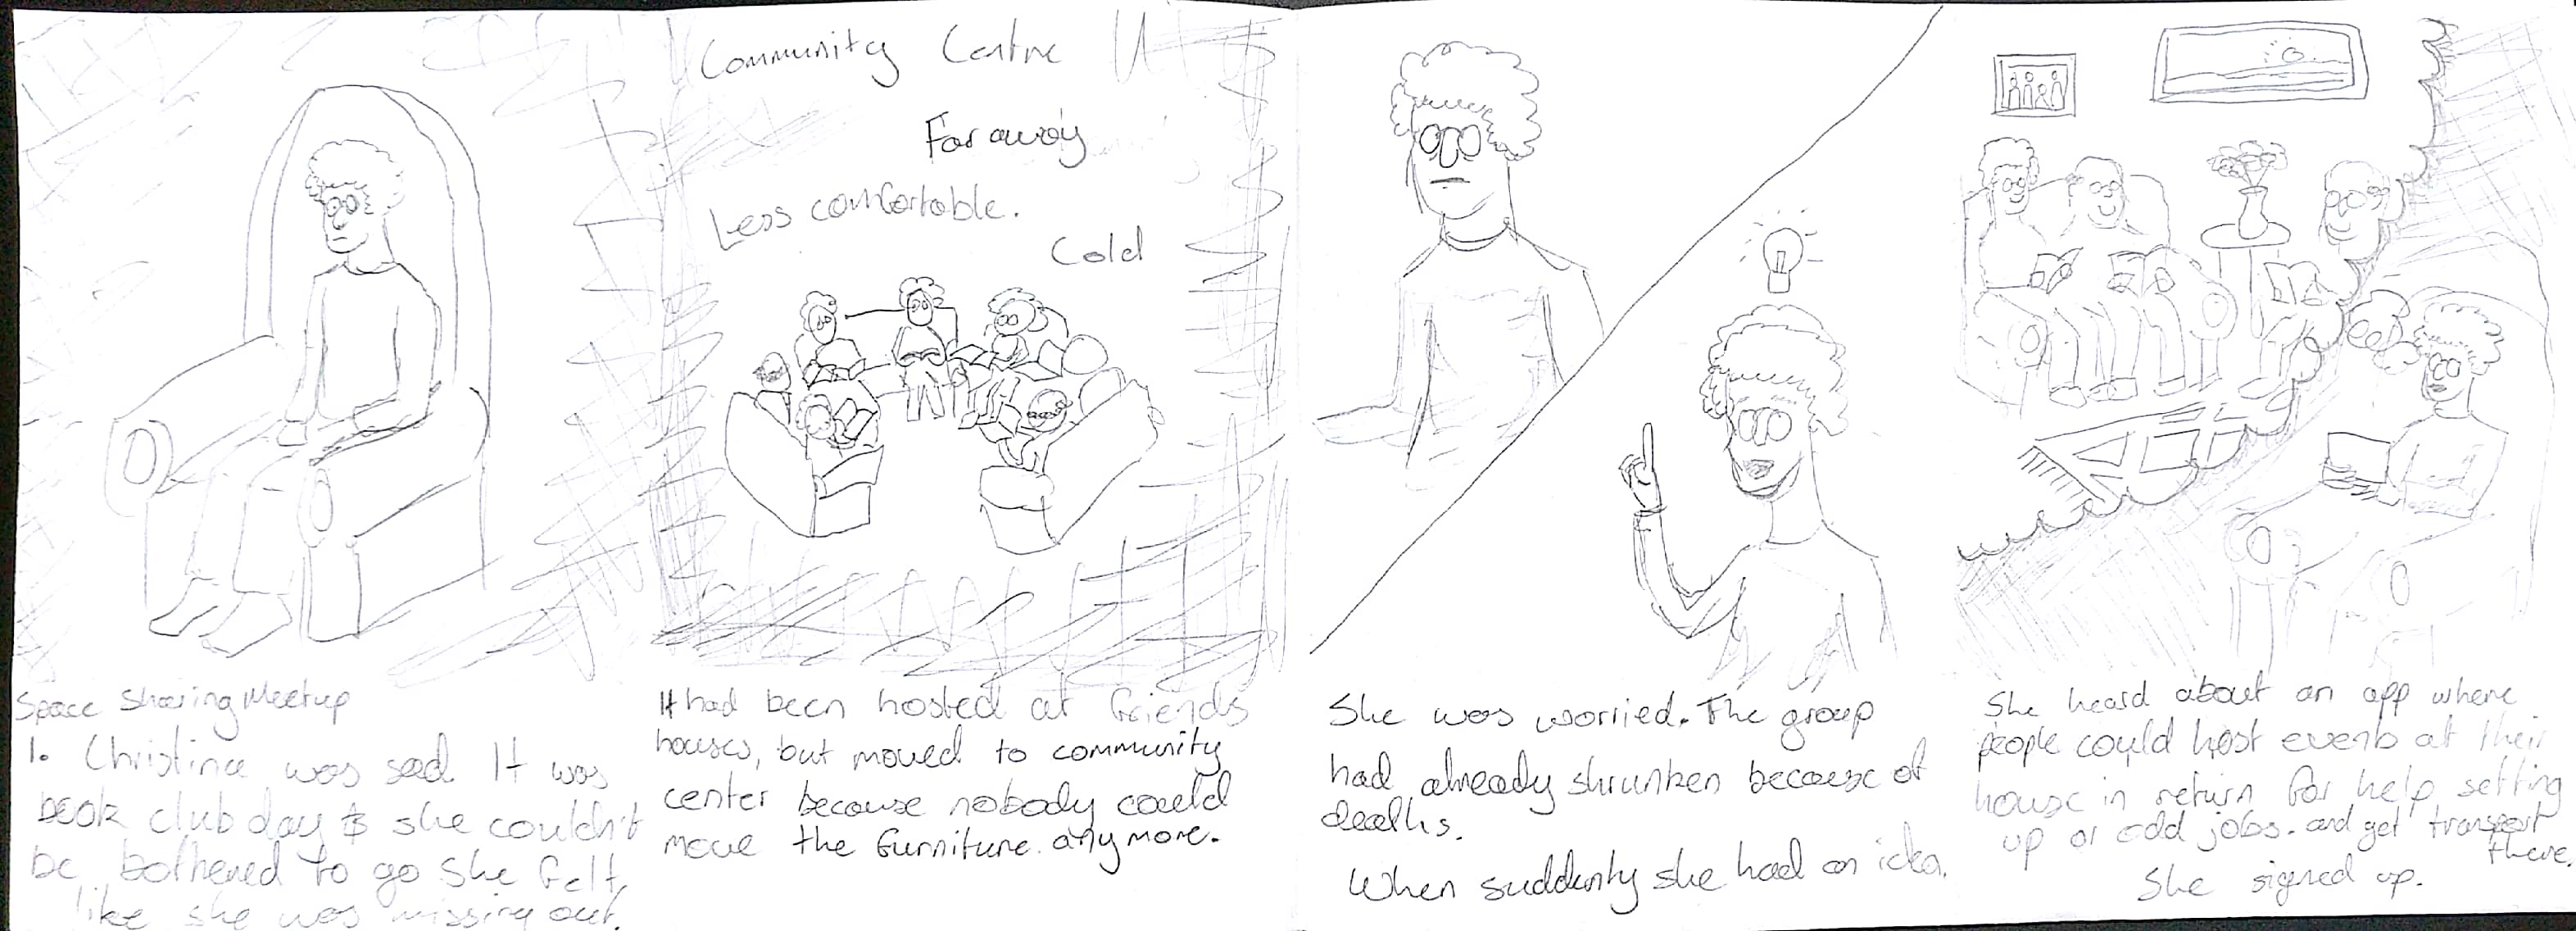 Community Centre
Far away
Less comfortable.
Cold
Space Sharing Meetup
1. Christina was sad. It was
book club day & she couldn't
be bothered to go She felt
like she was missing out.
It had been hosted at friends
houses, but moved to community
center because nobody could
move the furniture anymore.
She was worried. The group
had already shrunken because of
deaths.
When suddenly she had an idea.
She heard about an app where
people could host events at their
house in return for help setting
up or odd jobs. and get transport
there.
She signed up.